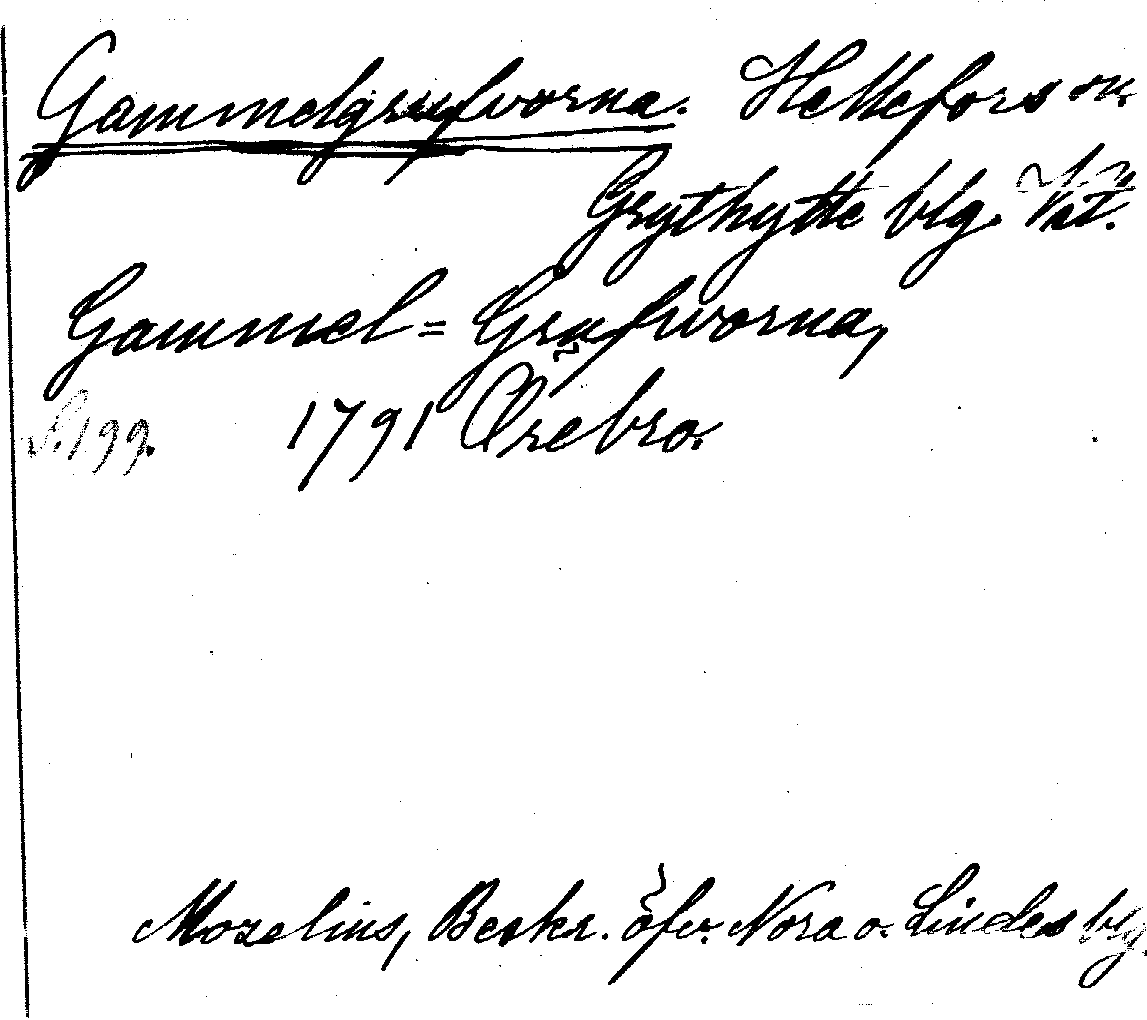 Gammelgrufvorna. Hellefors o.
Grythytte blg. Vstm.
Gammel=Grufworna,
S. 199. 1791 Örebro.
Mozelius, Beskr. öfv. Nora o. Lindes blg.